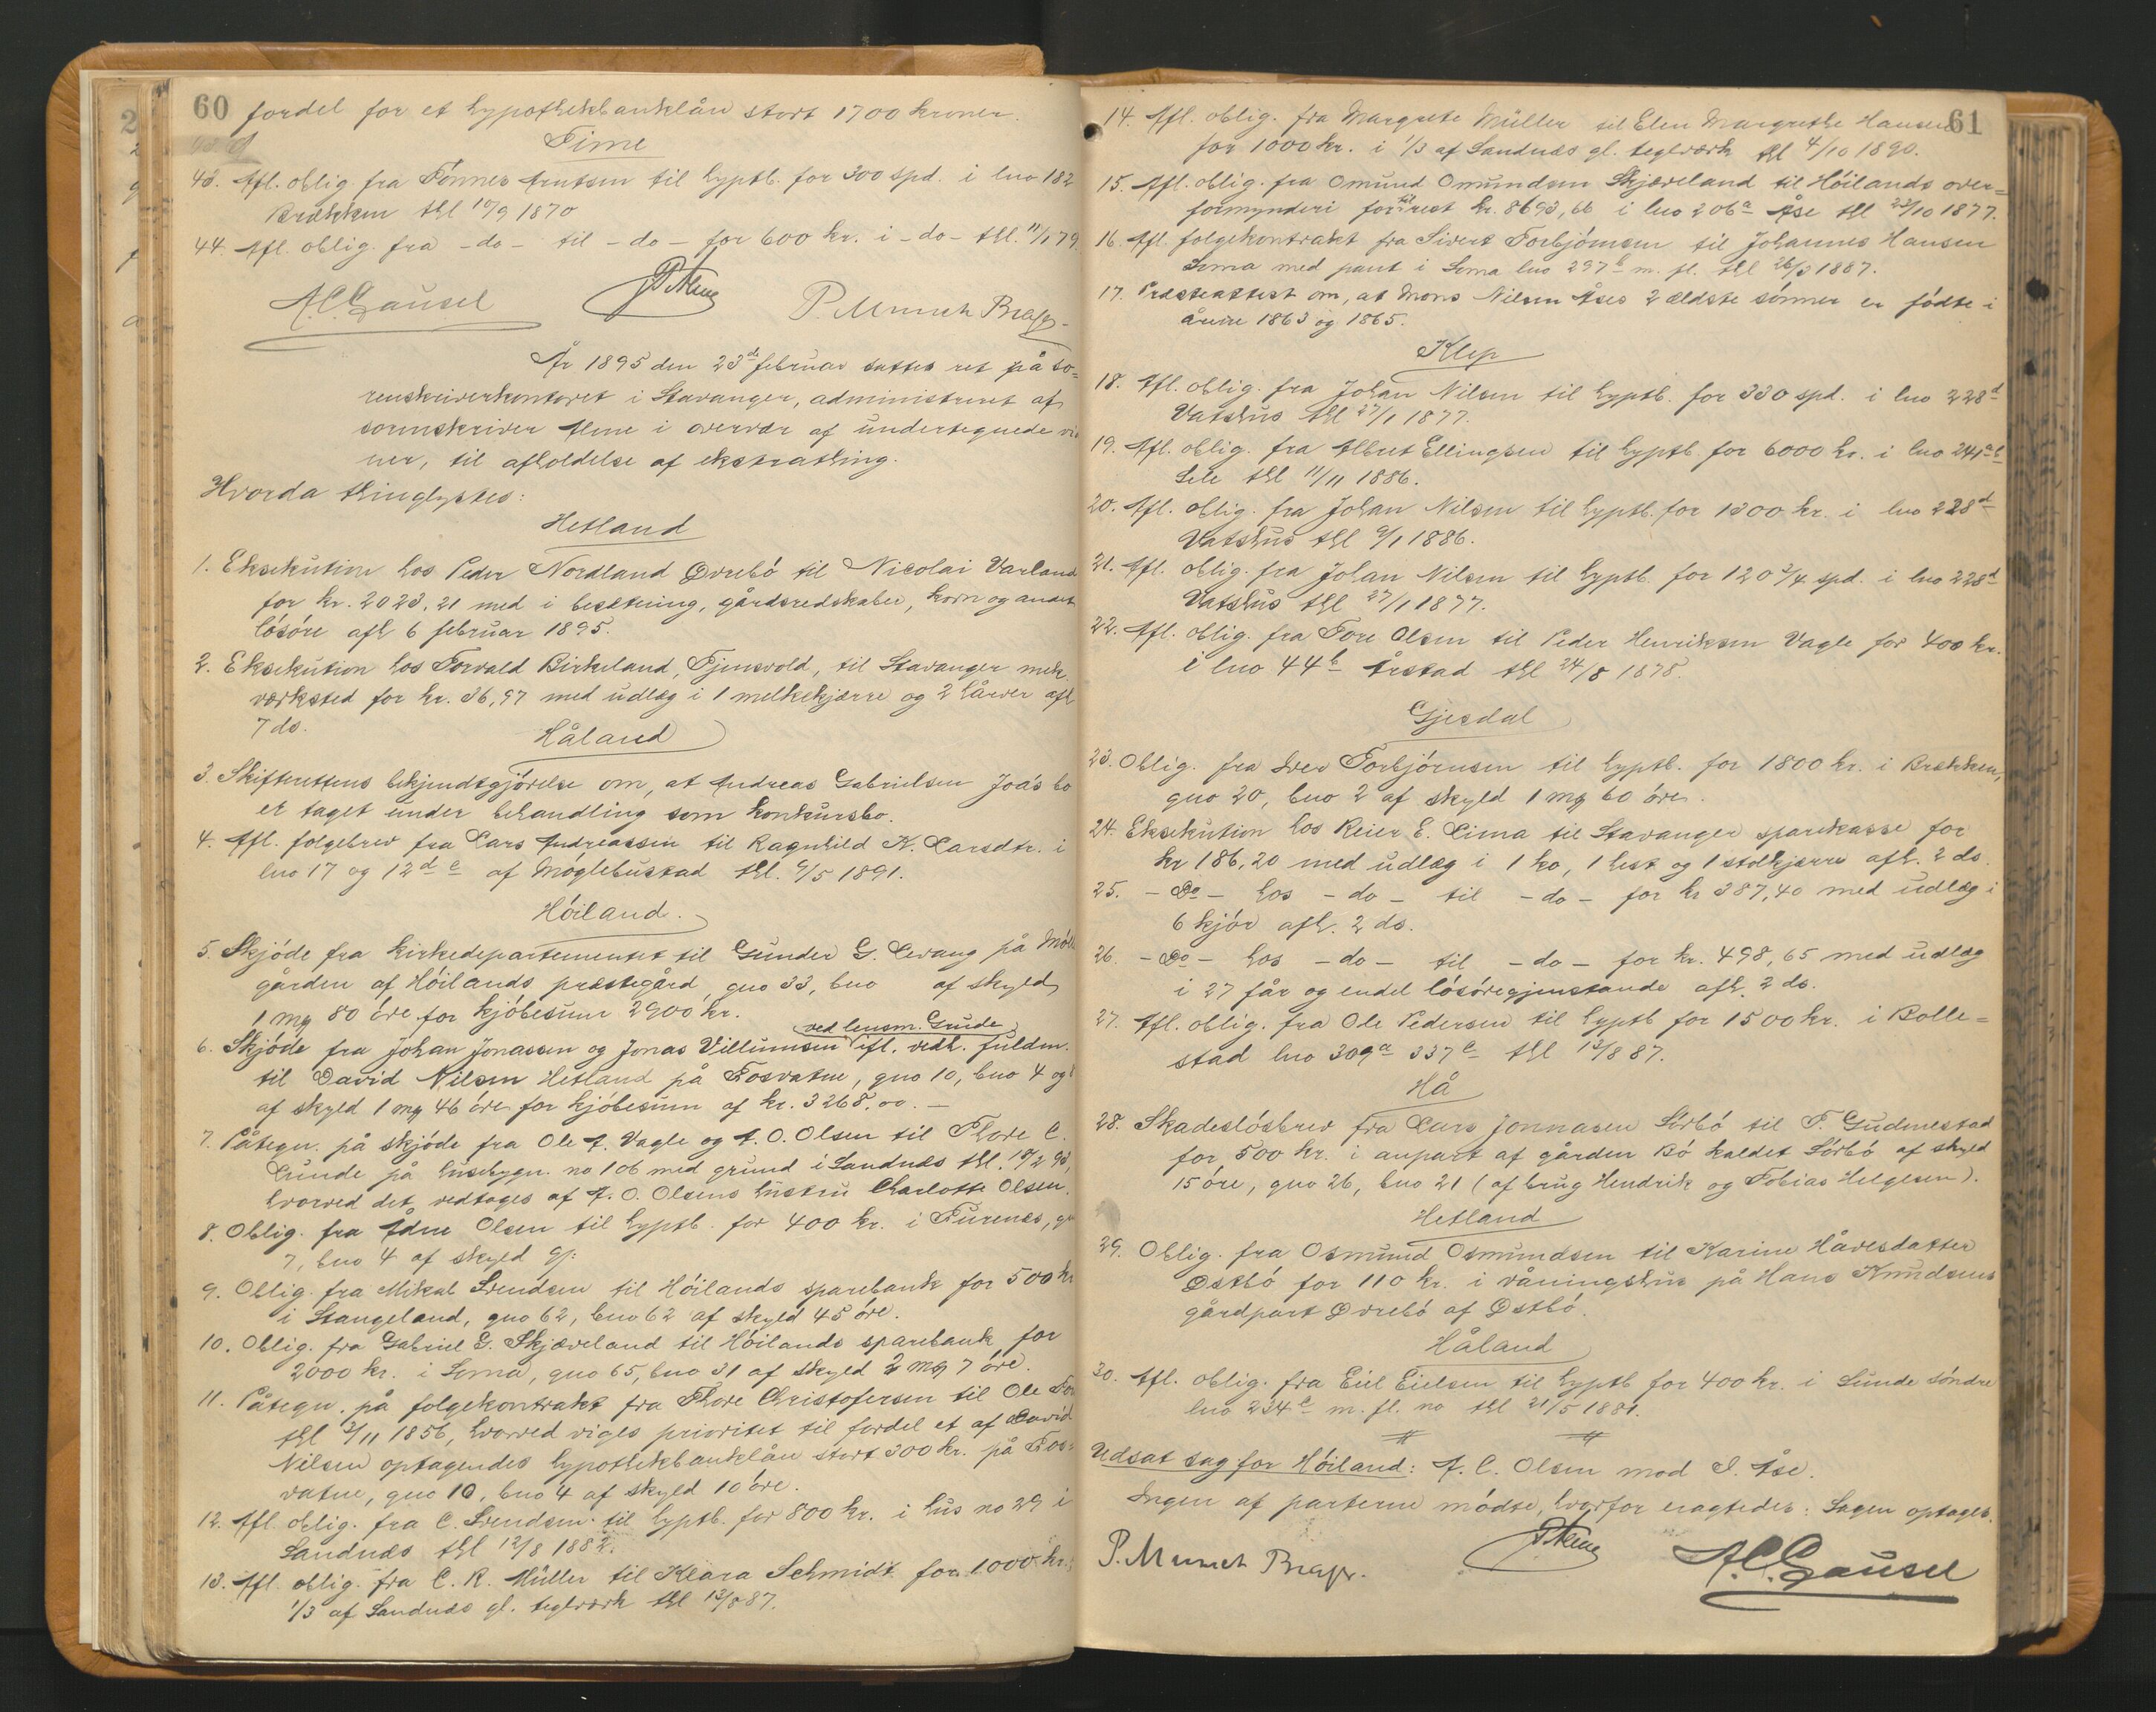 60 fordel for et hypothekbanklån stort 1700 kroner.
Time
43. Afl. oblig. fra Tønnes Arntsen til hyptb. for 300 spd. i lno 182
Brækken thl 10/9 1870
44. Afl. oblig. fra -do- til -do- for 600 kr. i -do- thl. 11/1 79
A. C. Gausel P. Munch Brager
År 1895 den 23de februar sattes ret på so=
renskriverkontoret i Stavanger, administreret af
sorenskriver Arne i overvær af undertegnede vid
ner, til afholdelse af ekstrathing.
Hvorda thinglystes:
Hetland
1. Eksekution hos Peder Nordland Øvrebó til Nicolai Varland
for kr. 2023,21 med i besætning, gårdsredskaber, korn og andet
lósóre afh 6 februar 1895.
2. Eksekution hos Torvald Birkeland, Tjensvold, til Stavanger mek.
værksted for kr. 36,97 med udlæg i 1 melkekjærre og 2 hårver afh
7 ds.
Håland
3. Skifterettens bekjendtgjórelse om, at Andreas Gabrielsen Joás bo
er taget under behandling som konkursbo.
4. Afl. folgebrev fra Lars Andreassen til Ragnhild K. Larsdtr. i
lno 17 og 12 d e af Móglebustad thl. 6/5 1891.
Hóiland.
5. Skjóde fra kirkedepartementet til Gunder G. Levang på Mól
gården af Hóilands præstegård, gno 33, bno af skyld
1 mq 80 óre for kjóbesum 2900 kr.
ved lensm. Grude
6. Skjóde fra Johan Jonassen og Jonas Villumsen ifl. vedh. fuldm.
til David Nilsen Hetland på Fosvatne, gno 10, bno 4 og 8
af skyld 1 mq 46 óre for kjóbesum af kr. 3268,00. —
7. Påtegn. på skjóde fra Ole A. Vagle og A. O. Olsen til Thore C.
Lunde på husebygn. no 106 med grund i Sandnæs thl. 18/2 93,
hvorved det vedtages af A. O. Olsens hustru Charlotte Olsen.
8. Oblig. fra Ådne Olsen til hyptb. for 400 kr. i Furenes, gno
7, bno 4 af skyld
9. Oblig. fra Mikal Svendsen til Hóilands sparebank for 500 kr
i Stangeland, gno 62, bno 62 af skyld 45 óre.
10. Oblig. fra Gabriel G. Skjæveland til Hóilands sparebank for
2000 kr. i Soma, gno 65, bno 31 af skyld 2 mq 7 óre.
11. Påtegn. på folgekontrakt fra Thore Christofersen til Ole Tor
thl 3/11 1856, hvorved viges prioritet til fordel et af David
Nilsen optagendes hypothekbanklån stort 300 kr. på Fos=
vatne, gno 10, bno 4 af skyld 10 óre.
12. Afl. oblig. fra C. Svendsen til hyptb. for 800 kr. i hus no 29 i
Sandnæs thl 12/8 1882.
13. Afl. oblig. fra C. R. Müller til Klara Schmidt for 1000 kr. i
1/3 af Sandnæs gl. teglværk thl 13/8 87.
61
14. Afl. oblig. fra Margrete Müller til Elen Margrethe Hansen
for 1000 kr. i 1/3 af Sandnæs gl. teglværk thl 4/10 1890.
15. Afl. oblig. fra Omund Omundsen Skjæveland til Hóilands over=
formynderi for til rest kr. 8693,66 i lno 206 a Åse thl 23/10 1877.
16. Afl. folgekontrakt fra Sivert Torbjórnsen til Johannes Hansen
Soma med pant i Soma lno 297 b m. fl. thl 26/3 1887.
17. Præsteattest om, at Mons Nilsen Åses 2 ældste sónner er fódte i
årene 1863 og 1865.
Klep
18. Afl. oblig. fra Johan Nilsen til hyptb. for 330 spd. i lno 228 d
Vatshus thl 27/1 1877.
19. Afl. oblig. fra Albret Ellingsen til hyptb. for 6000 kr. i lno 241 a b
Sele thl 11/11 1886.
20. Afl. oblig. fra Johan Nilsen til hyptb. for 1300 kr. i lno 228 d
Vatshus thl 9/1 1886.
21. Afl. oblig. fra Johan Nilsen til hyptb. for 120 3/4 spd. i lno 228 d
Vatshus thl 27/1 1877.
22. Afl. oblig. fra Tore Olsen til Peder Henriksen Vagle for 400 kr.
i lno 44 b Årstad thl 24/8 1878.
Gjesdal
23. Oblig. fra Iver Torbjórnsen til hyptb. for 1800 kr. i Brækken,
gno 20, bno 2 af skyld 1 mq 60 óre.
24. Eksekution hos Reier E. Lima til Stavanger sparekasse for
kr 186,20 med udlæg i 1 ko, 1 hest og 1 stolkjærre afh. 2 ds.
25. - Do - hos - do - til - do - for kr 387,40 med udlæg i
6 kjór afh. 2 ds.
26. - Do - hos - do - til - do - for kr. 498,65 med udlæg
i 27 får og endel lósóregjenstande afh. 2 ds.
27. Afl. oblig. fra Ole Pedersen til hyptb for 1500 kr. i Bolle=
stad lno 309 a 337 c thl 13/8 87.
Hå
28. Skadeslósbrev fra Lars Jonnasen Sórbó til T. Gudmestad
for 500 kr. i anpart af gården Bó kaldet Sórbó af skyld
15 óre, gno 26, bno 21 (af brug Hendrik og Tobias Helgesen).
Hetland
29. Oblig. fra Osmund Osmundsen til Karine Håvesdatter
Østbó for 110 kr. i våningshus på Hans Knudsens
gårdpart Øvrebó af Østbó.
Håland
30. Afl. oblig. fra Eiel Eielsen til hyptb for 400 kr. i Sunde sóndre
lno 234 c m. fl. no thl 21/5 1881.
Udsat sag for Hóiland: A. C. Olsen mod I. Åse.
Ingen af parterne módte, hvorfor eragtedes: Sagen optages.
P. Munch Brager. A. C. Gausel